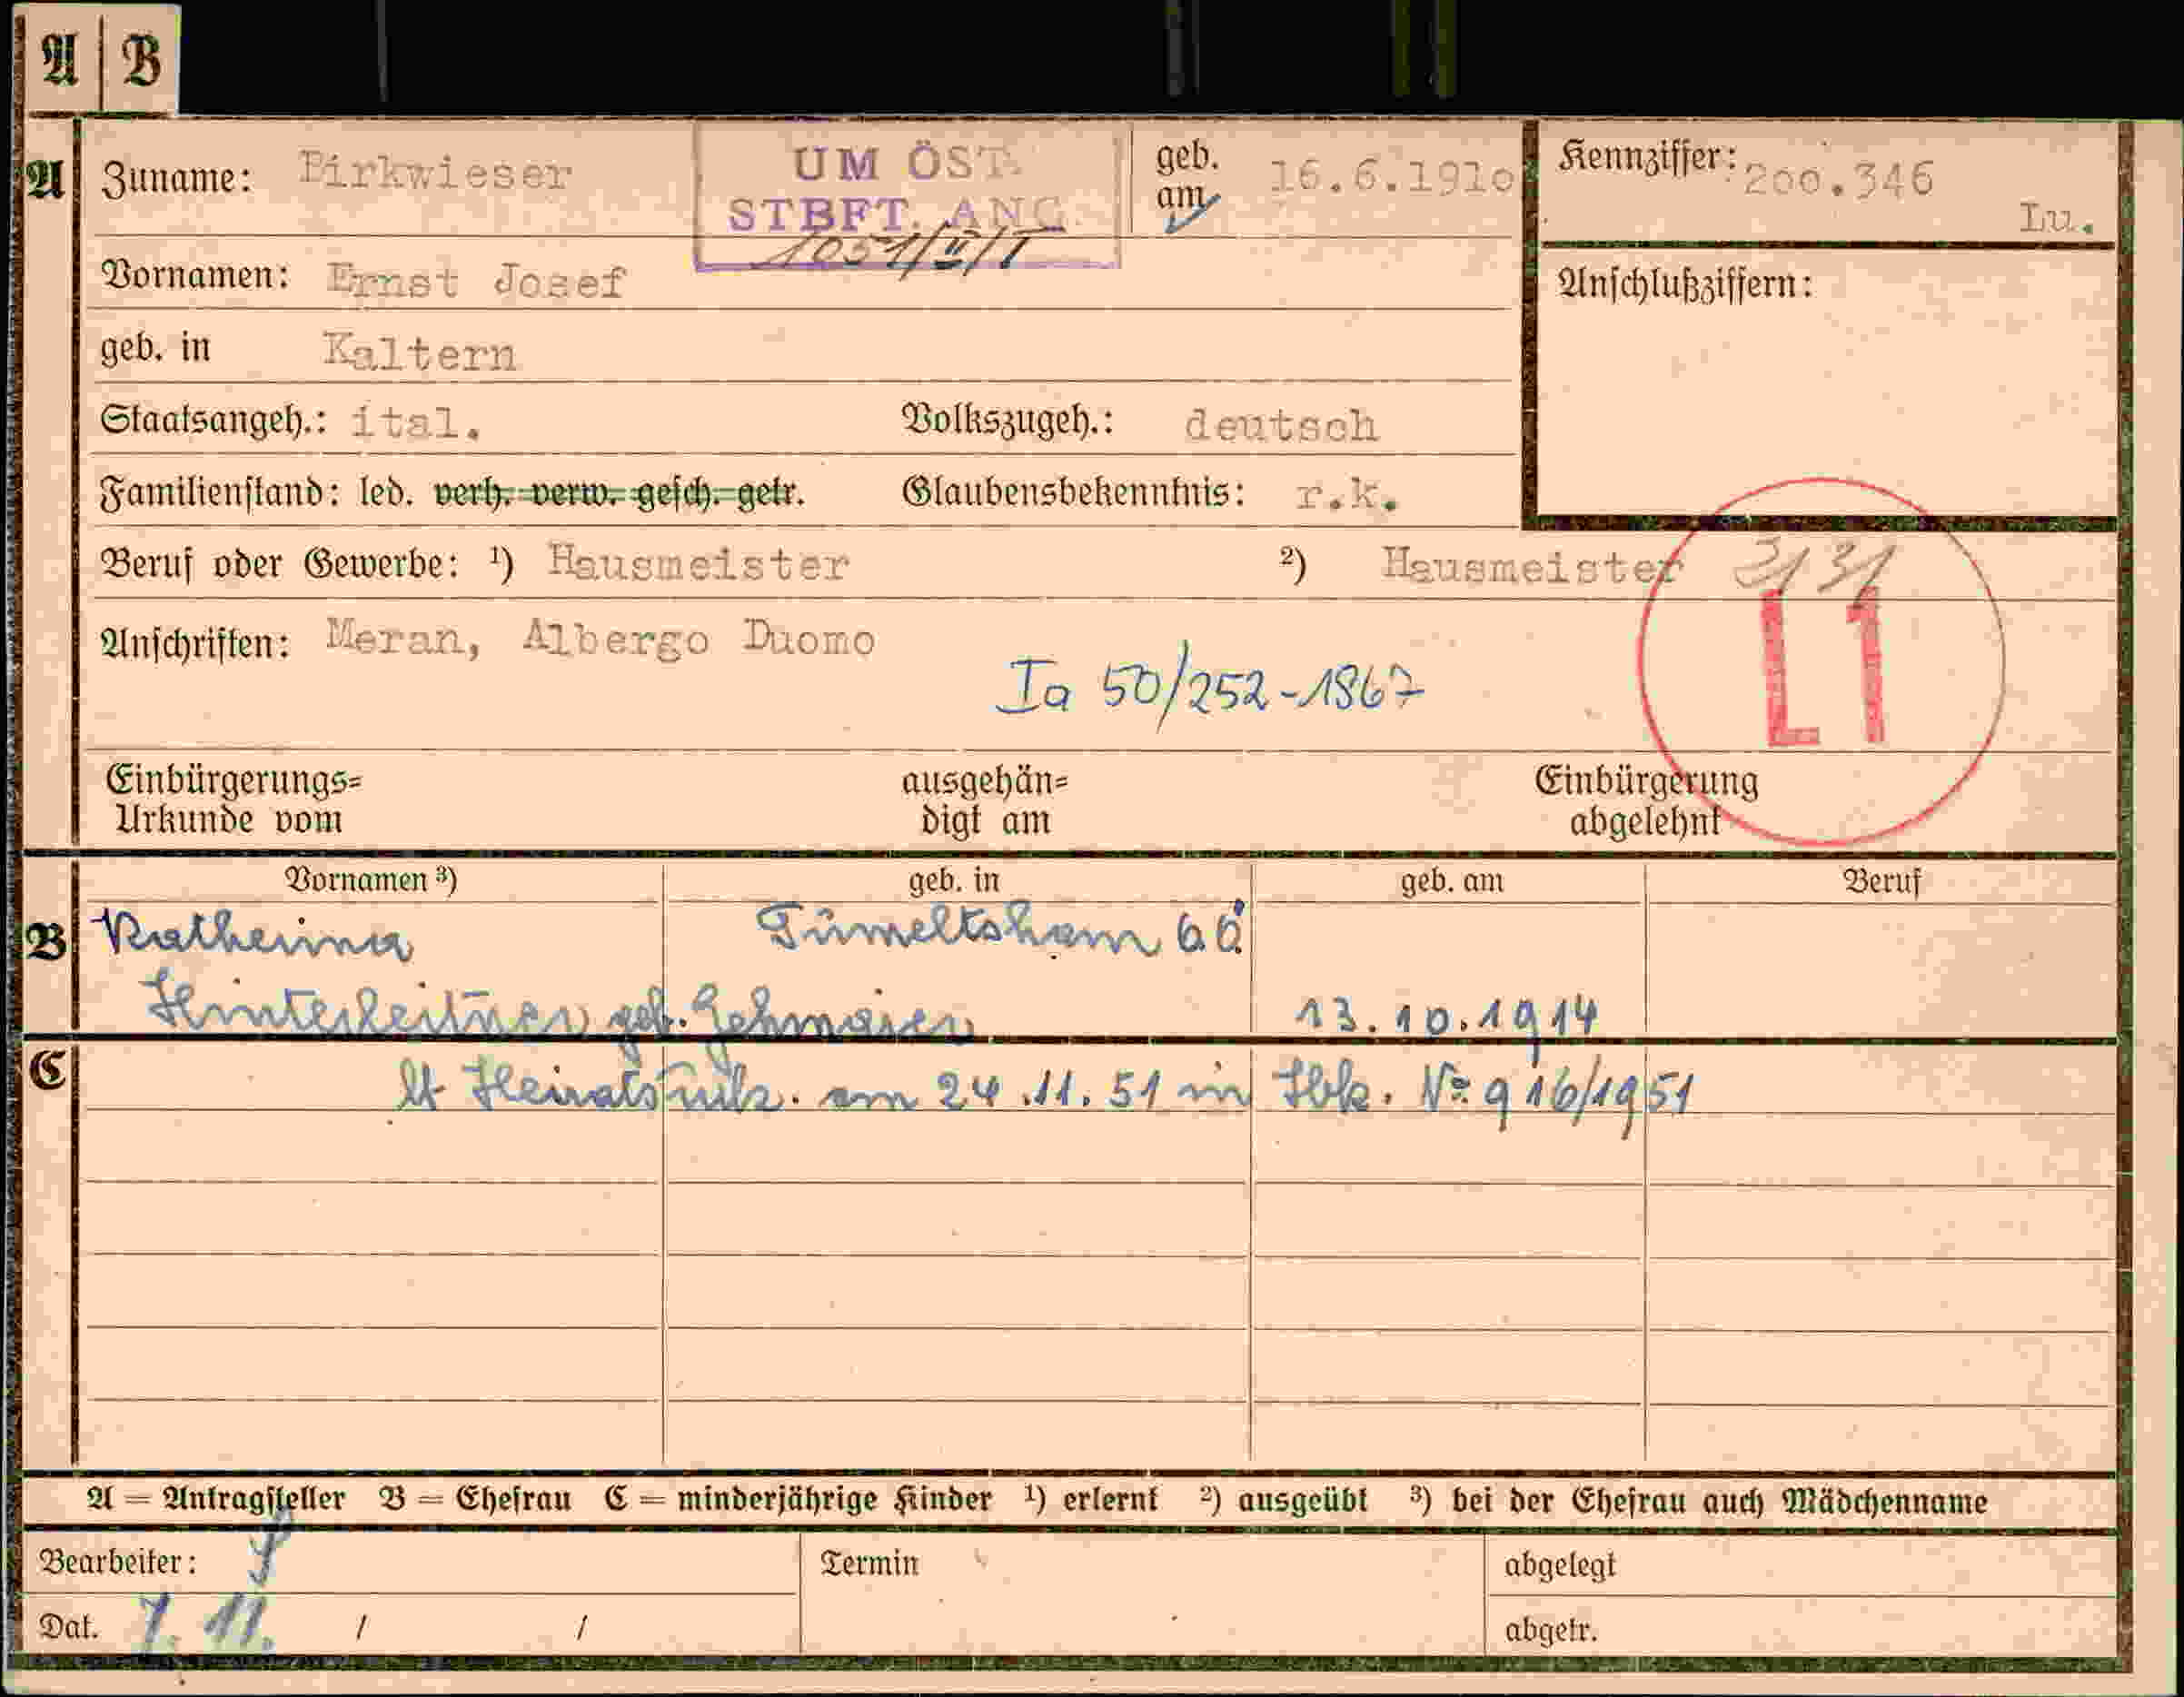 A B
A Zuname: Pirkwieser UM ÖST. geb. am 16.6.1910 Kennziffer: 200.346
STBFT. ANG. Lu.
1051/II/T
Vornamen: Ernst Josef Anschlußziffern:
geb. in Kaltern
Staatsangeh.: ital. Volkszugeh.: deutsch
Familienstand: led. verh. verw. gesch. getr. Glaubensbekenntnis: r.k.
Beruf oder Gewerbe: ¹) Hausmeister ²) Hausmeister
L1
Anschriften: Meran, Albergo Duomo
Ia 50/252-1867
Einbürgerungs= ausgehän= Einbürgerung
Urkunde vom digt am abgelehnt
Vornamen ³) geb. in geb. am Beruf
B Katherina Tumeltsham O.Ö.
Hinterleitner geb. Gehmaier 13.10.1914
C lt Heiratsurk. am 24.11.51 in Ibk. No 916/1951
A = Antragsteller B = Ehefrau C = minderjährige Kinder ¹) erlernt ²) ausgeübt ³) bei der Ehefrau auch Mädchenname
Bearbeiter: Termin abgelegt
Dat. 7. 11. / / abgetr.